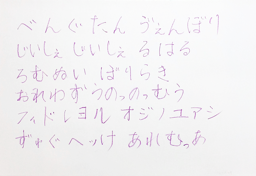 べんぐたん ゔぇんぼり
じいしぇ じいしぇ るはる
ろむぬい ぼりらき
おれわずうのっのっむう
フィドレヨル オジノユアシ
ずゎぐ へっけ あれむっあ